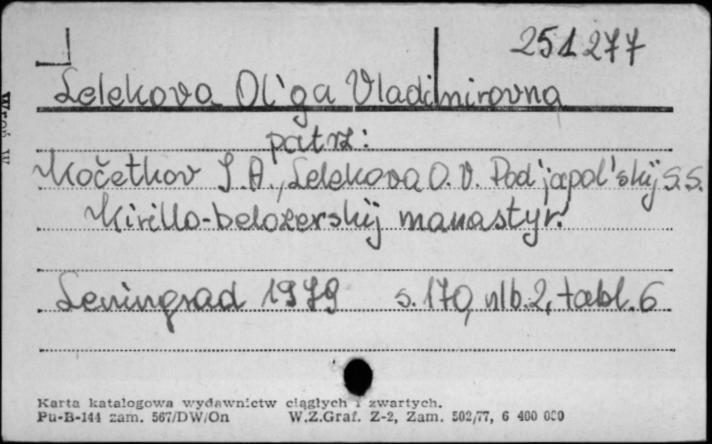 251277
Lelekova Ol'ga Vladimirovna
patrz:
Kočetkov I. A., Lelekova O. V. Pod'japol'skij S. S.
Kirillo-belozerskij manastyr.
Leningrad 1979 s. 170, nlb. 2, tabl. 6
Karta katalogowa wydawnictw ciągłych i zwartych.
Pu-B-144 zam. 567/DW/On W.Z.Graf. Z-2, Zam. 502/77, 6 400 000